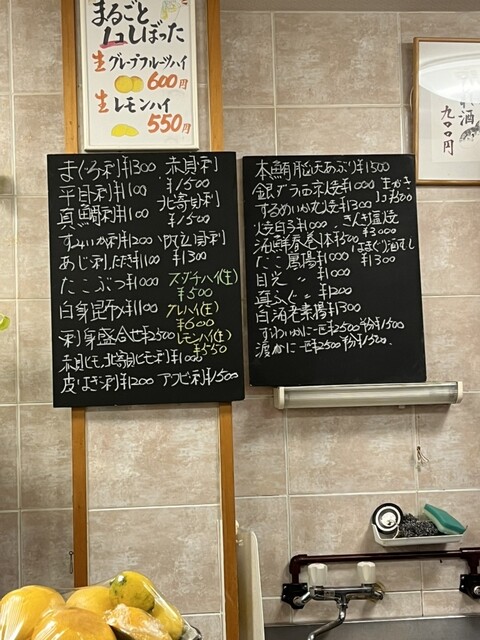 まるごと
しぼった
生グレープフルーツハイ
600円
生レモンハイ
550円
酒
九〇〇円
まぐろ刺¥1300 赤貝刺
¥1500
平目刺¥1100 北寄貝刺
真鯛刺¥1100 ¥1500
すみいか刺¥1200 帆立貝刺
あじ刺、たたき¥1100 ¥1300
たこぶつ¥1000 ズッチハイ(生)
¥500
白身昆布〆¥1100 グレハイ(生)
¥600
刺身盛合せ¥2500 レモンハイ(生)
¥550
赤貝ヒモ、北寄貝ヒモ刺¥1000
皮はぎ刺¥1200 アワビ刺¥1500
本鮪脳天あぶり¥1500
銀ダラ西京焼¥1000
するめいか丸焼¥1300
焼白子¥1000 きんき塩焼
¥3000
海鮮春巻1本¥500 はまぐり酒むし
¥1300
たこ唐揚¥1000
目光 〃 ¥1000
真ふぐ 〃 ¥1200
白海老素揚¥1300
ずわいがに一匹¥2500 半分¥1500
渡りがに一匹¥2500 半分¥1500